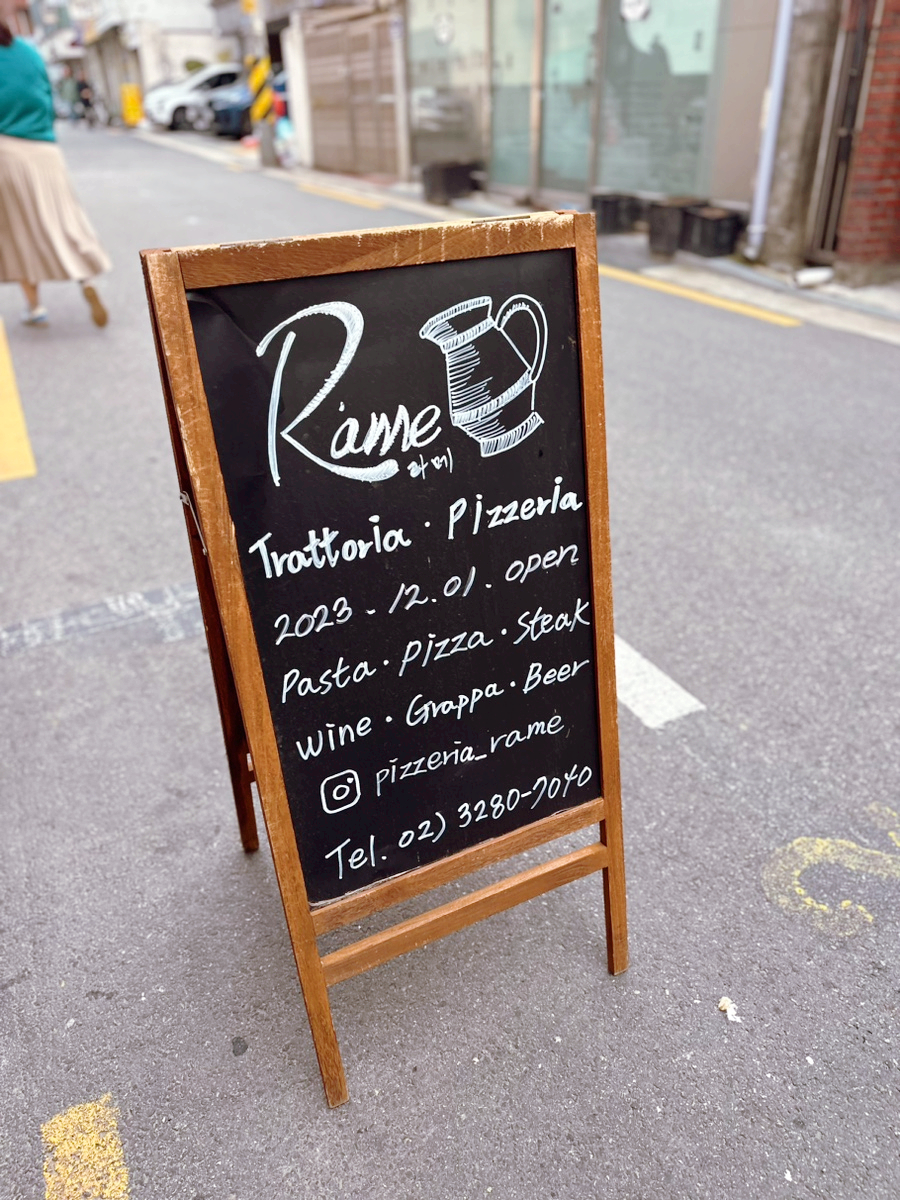 Rame
라메
Trattoria · Pizzeria
2023 . 12. 01 . open
Pasta · Pizza · Steak
Wine · Grappa · Beer
pizzeria_rame
Tel. 02) 3280-7040